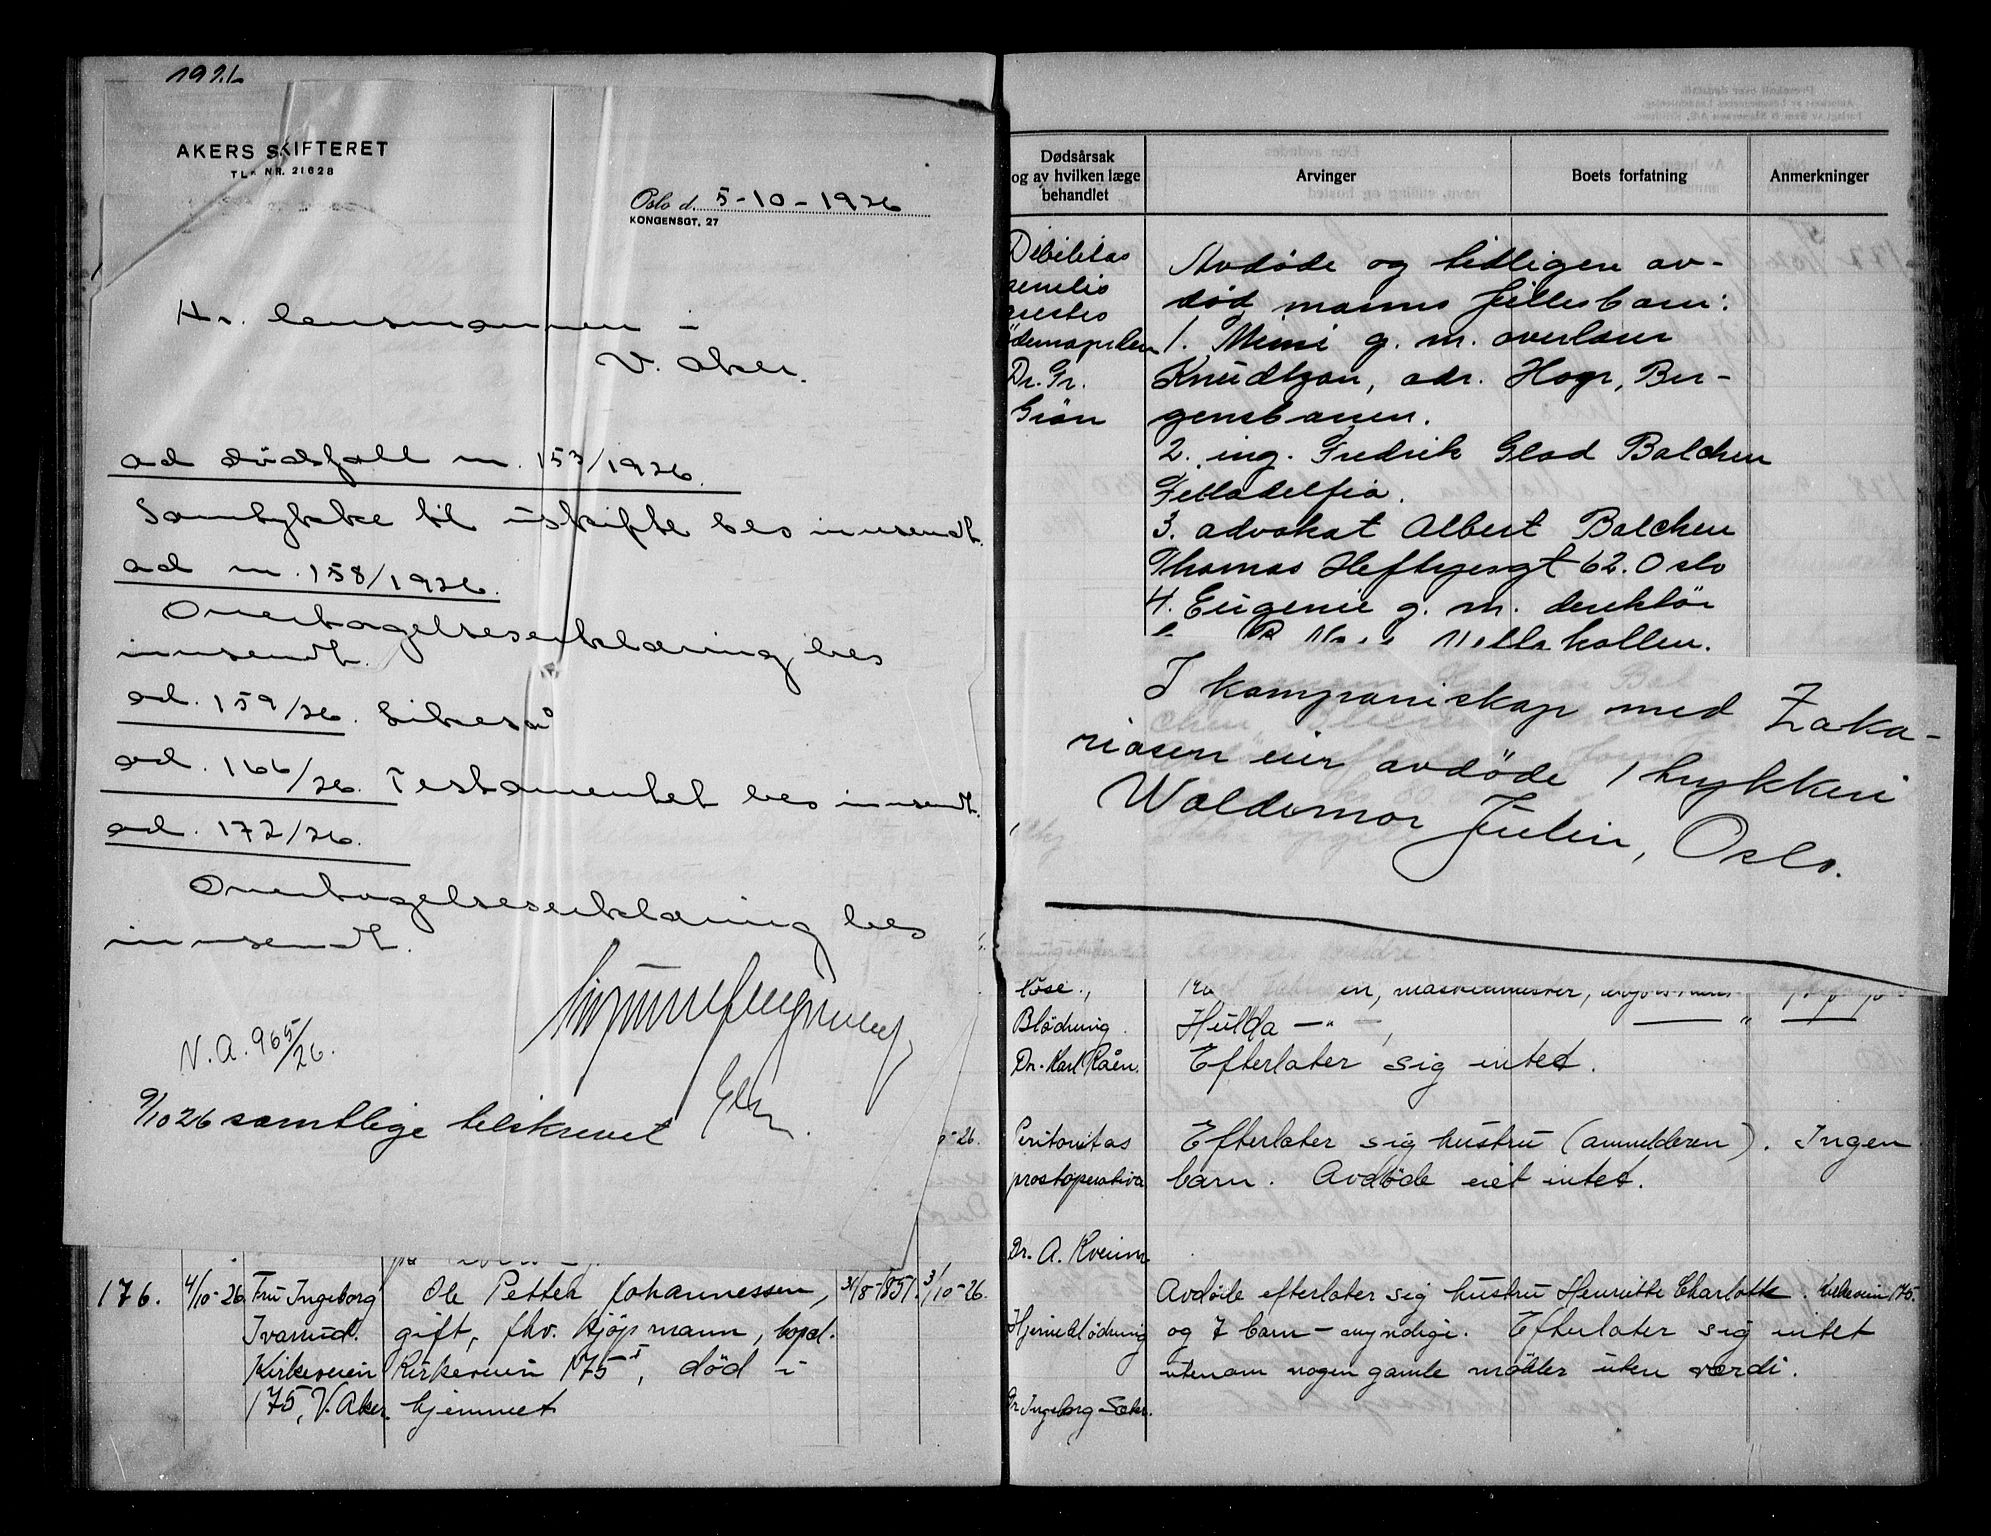 1926
AKERS SKIFTERET
TLF. NR. 21628
Oslo d. 5-10-1926
KONGENSGT. 27
Hr. lensmannen i
V. Aker.
ad dødsfall nr. 153/1926.
Samtykke til uskifte bes innsendt.
ad nr. 158/1926.
Overtagelseserklæring bes
innsendt.
ad. 159/26. Likeså
ad. 166/26. Testamentet bes innsendt.
ad. 172/26.
Overtagelseserklæring bes
innsendt.
V.A. 965/26.
9/10 26 samtlige tilskrevet
-26.
176.
4/10-26
Fru Ingeborg
Ivarrud.
Kirkeveien
175, V. Aker.
Ole Petter Johannessen,
gift, fhv. kjøpmann, bopæl.
Kirkeveien 175 I, død i
hjemmet
31/8-1851.
3/10-26.
Dødsårsak
og av hvilken læge
behandlet
Arvinger
Boets forfatning
Anmerkninger
Debilitas
senilis
Dr. Gr.
Grøn
Avdøde og tidligere av-
død manns fellesbarn:
1. Mimi g. m. overlærer
Knudtzon, adr. Hop, Ber-
gensbanen.
2. ing. Fredrik Glad Balchen
Filladelfia.
3. advokat Albert Balchen
Thomas Heftyesgt 62. Oslo
4. Eugenie g. m. direktør
hallen.
I kompaniskap med Zaka-
riasen eier avdøde 1 trykkeri
Waldemar Julin, Oslo.
løse.,
en, maskinmester,
Blødning.
Hulda -"-
Dr. Karl Råen.
Efterlater sig intet.
Peritonitas
postoperativa
Dr. A. Kveim
Efterlater sig hustru (anmelderen). Ingen
barn. Avdøde eiet intet.
Hjerneblødning
Dr. Ingeborg
Avdøde efterlater sig hustru Henriette Charlotte. Kirkeveien 175.
og 7 barn - myndige. Efterlater sig intet
utenom nogen gamle møbler uten værdi.